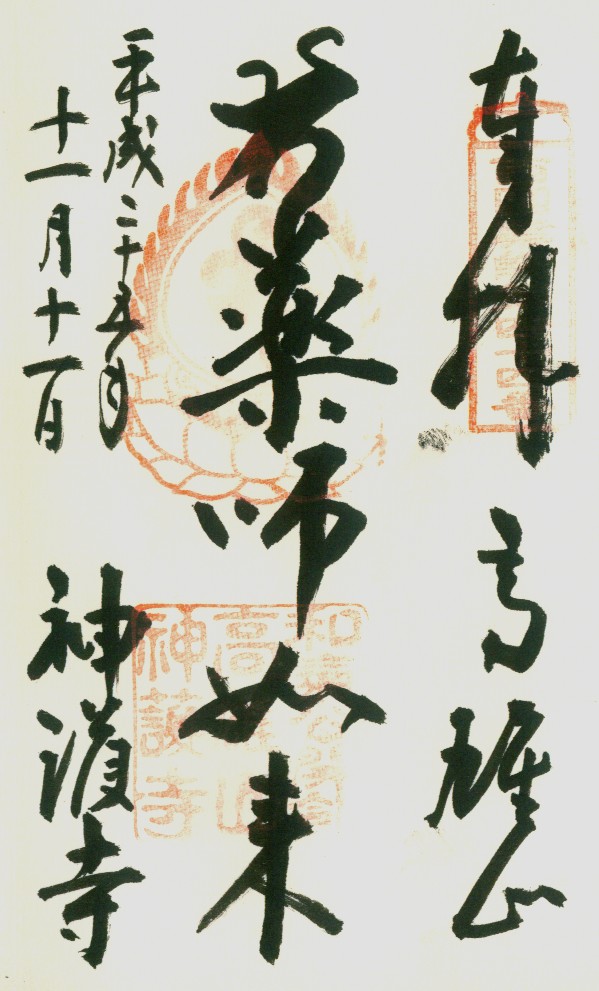 奉拝 高雄山
薬師如来
平成二十五年
十一月十一日
神護寺
高雄山
神護寺